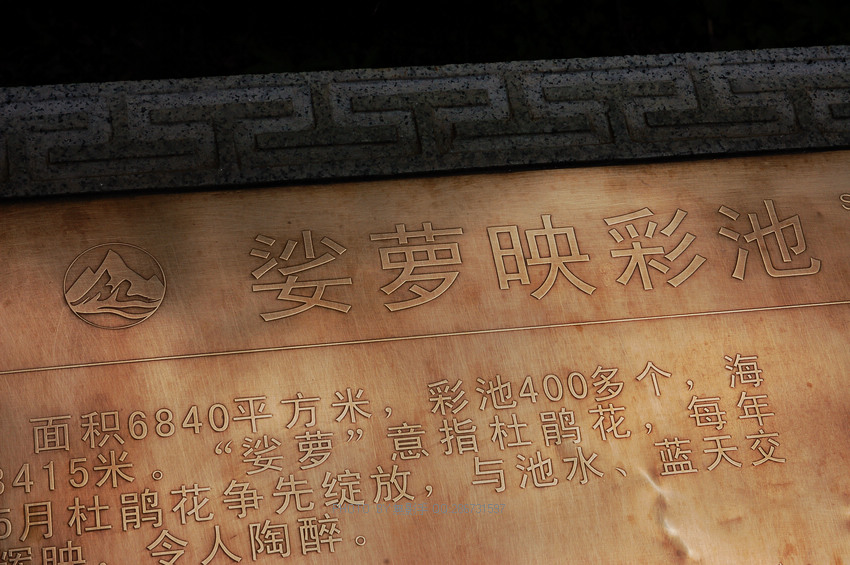 娑萝映彩池
面积6840平方米，彩池400多个，海
3415米。“娑萝”意指杜鹃花，每年
5月杜鹃花争先绽放，与池水、蓝天交
辉映，令人陶醉。